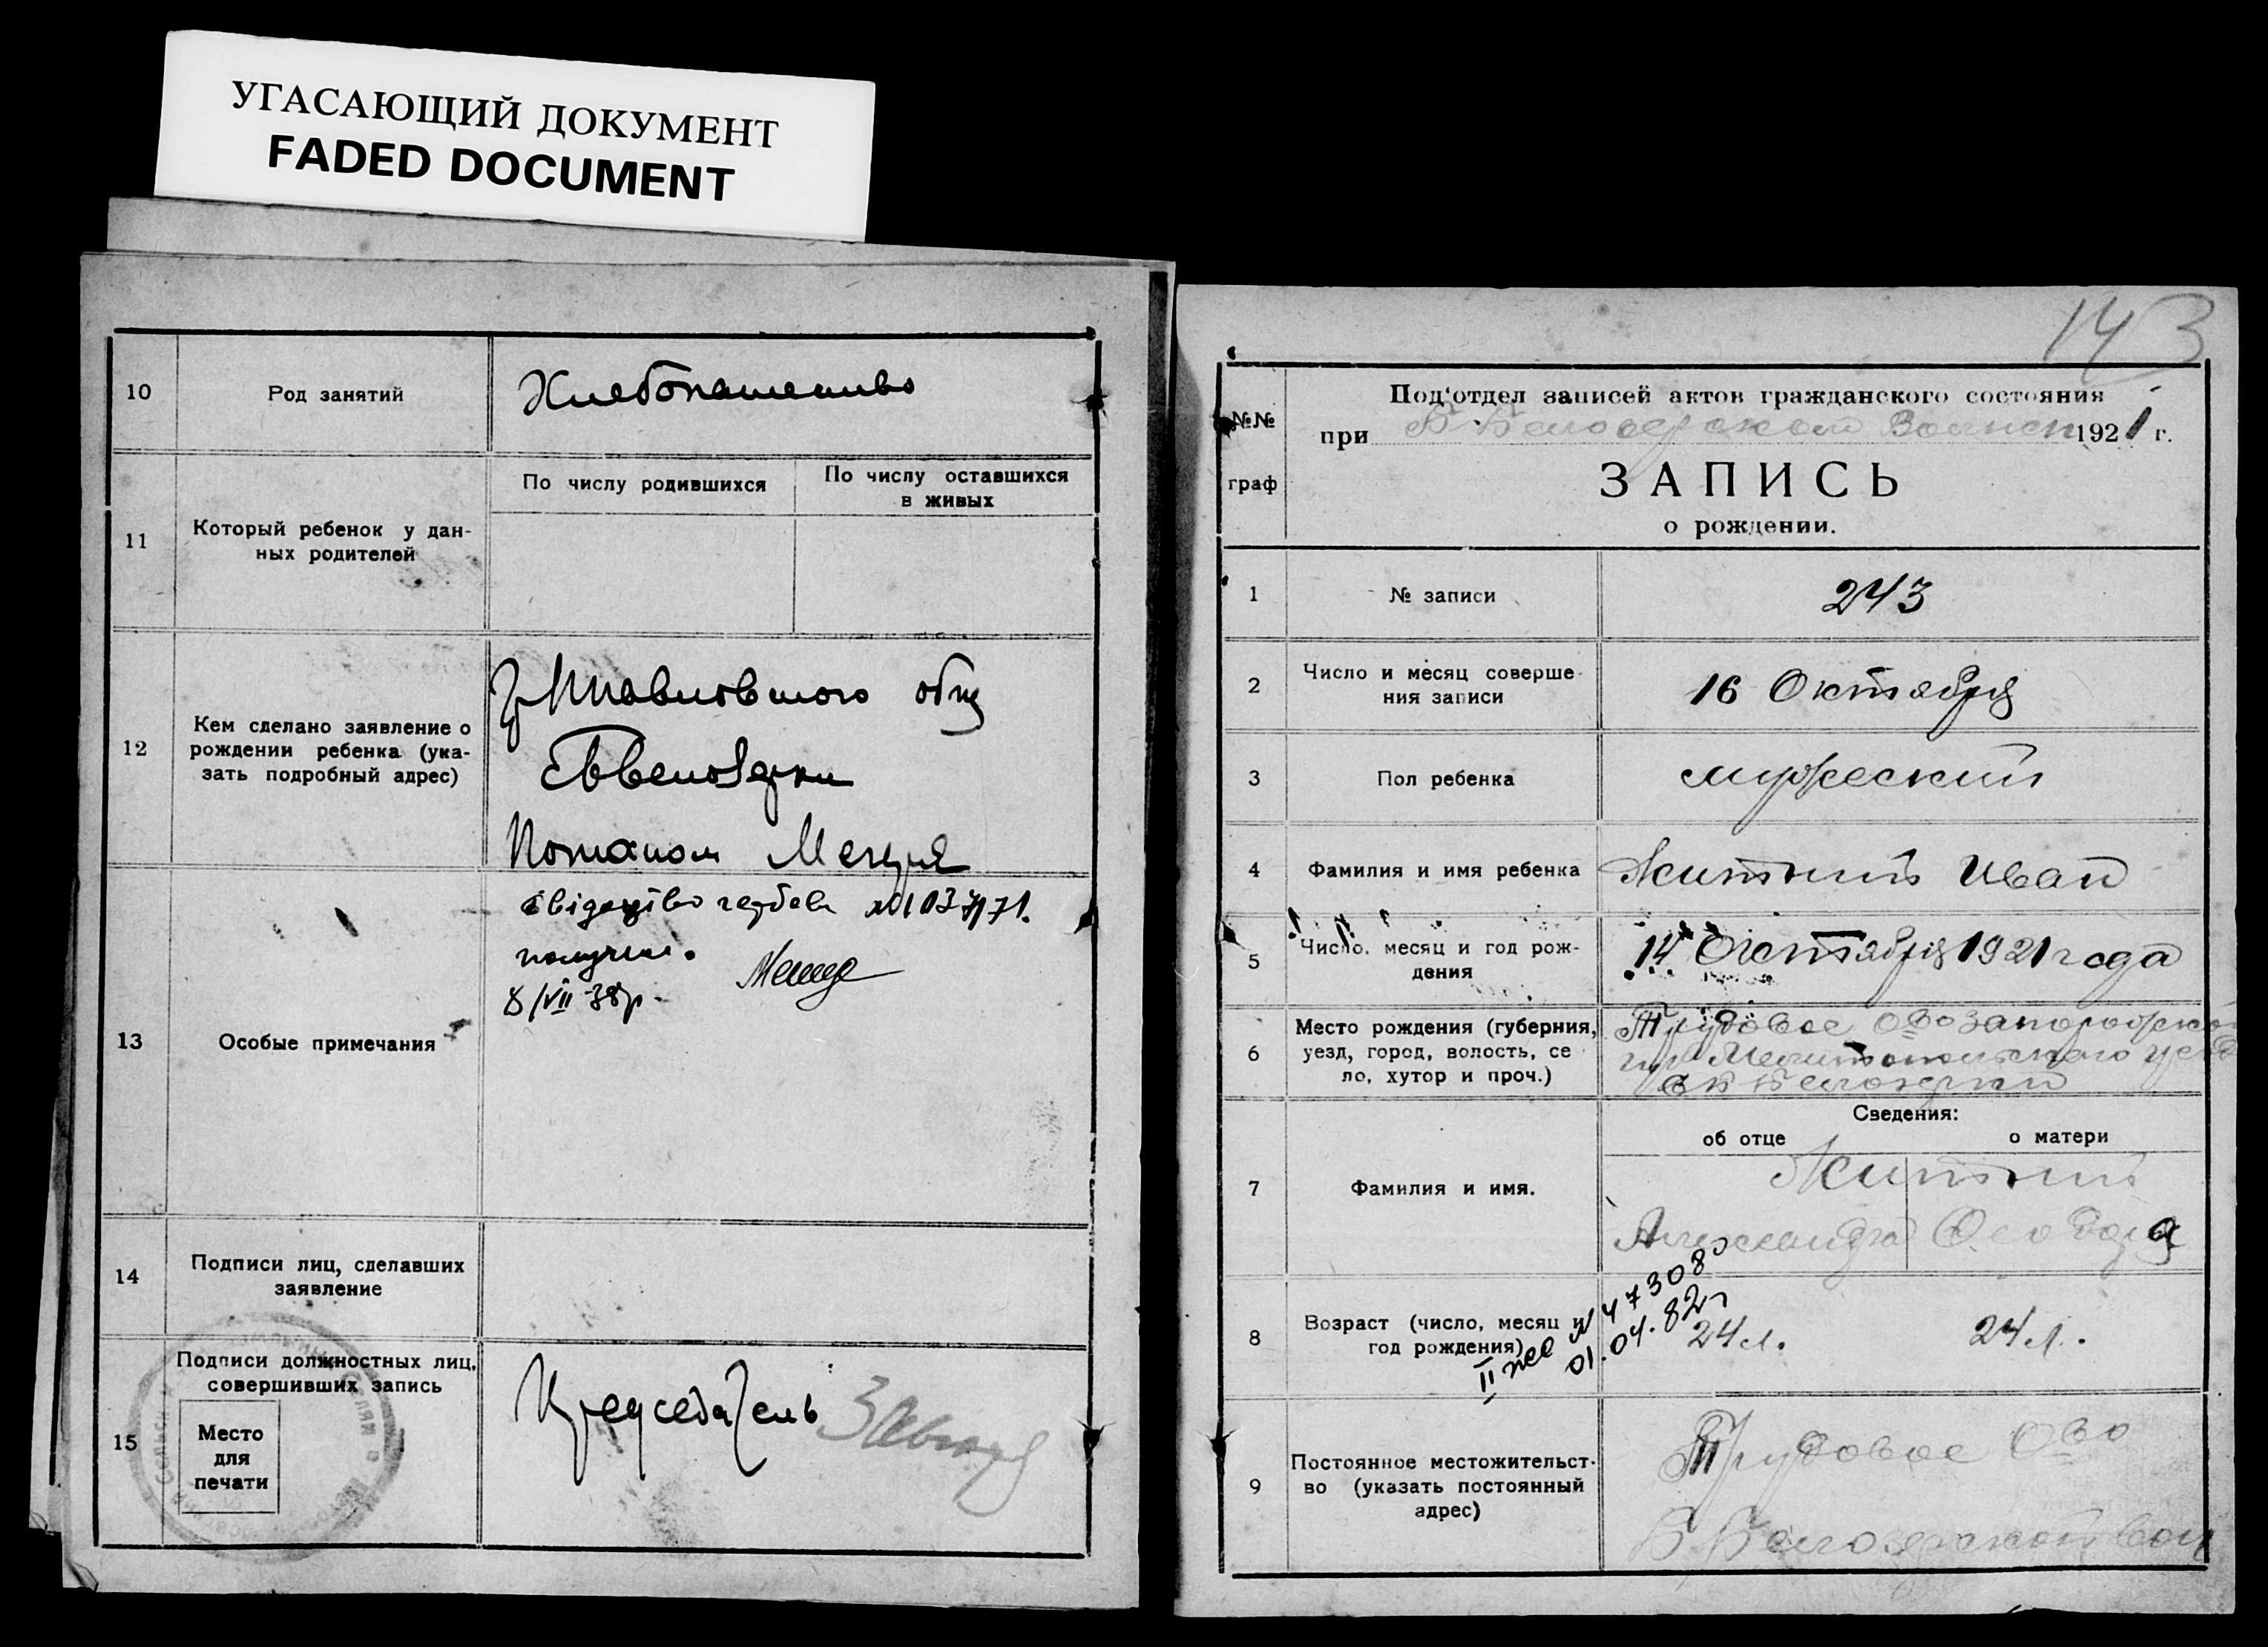 УГАСАЮЩИЙ ДОКУМЕНТ
FADED DOCUMENT
10
Род занятий
Хлебопашество
11
Который ребенок у дан-
ных родителей
По числу родившихся
По числу оставшихся
в живых
12
Кем сделано заявление о
рождении ребенка (ука-
зать подробный адрес)
Потапом
13
Особые примечания
получил.
8/VII-38р.
14
Подписи лиц, сделавших
заявление
15
Подписи должностных лиц,
совершивших запись
Место
для
печати
Председатель
143
№№
граф
Под'отдел записей актов гражданского состояния
при 1921 г.
ЗАПИСЬ
о рождении.
1
№ записи
243
2
Число и месяц соверше-
ния записи
16 Октября
3
Пол ребенка
мужеский
4
Фамилия и имя ребенка
Житний Иван
5
Число, месяц и год рож-
дения
14 Октября 1921 года
6
Место рождения (губерния,
уезд, город, волость, се
ло, хутор и проч.)
Трудовое Ово Запорожской
Мелитопольского уезда
7
Фамилия и имя.
Сведения:
об отце
о матери
Житний
Александр
8
Возраст (число, месяц и
год рождения)
24 л.
24 л.
II же № 473080
01.04.82г
9
Постоянное местожительст-
во (указать постоянный
адрес)
Трудовое Ово
Б Белозерской вол